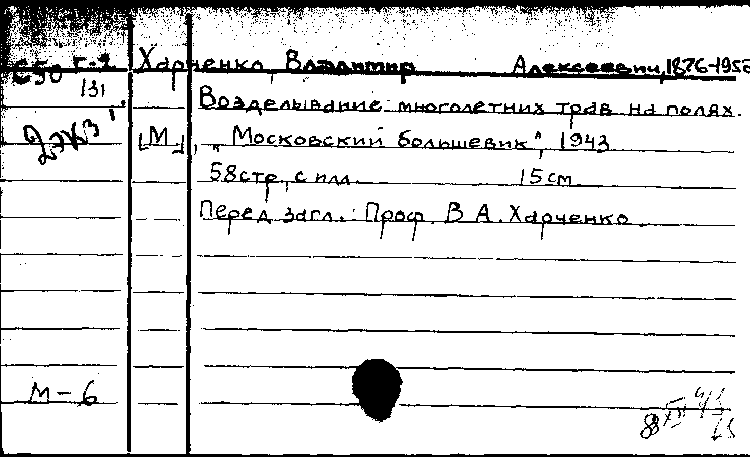 С50 Г-2 Харченко, Владимир Алексеевич, 1876-195
131
Возделывание многолетних трав на полях.
2 экз
[М.], „Московский большевик“, 1943
58 стр., с илл. 15 см
Перед загл.: Проф. В. А. Харченко
М-6
8 XII